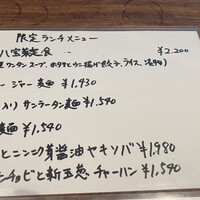 限定ランチメニュー
八宝菜定食 ¥2.200
ワンタンスープ、ホタテとウニ揚げ餃子、ライス、漬物)
ージャー麺 ¥1.430
入り サンラータン麺 ¥1.540
麺 ¥1.540
とニンニク芽醤油ヤキソバ ¥1.980
ンチョビと新玉葱チャーハン ¥1.540